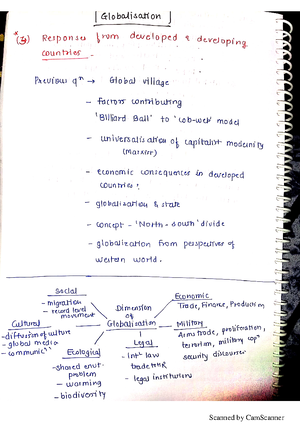 Globalisation
* (3) Responses from developed & developing
countries.
Previous qn → Global village
- factors contributing
'Billiard Ball' to 'cob-web' model
- universalisation of capitalist modernity
(Marxist)
- economic consequences in developed
countries?
- globalisation & state
- concept - 'North-South' divide
- globalization from perspective of
western world.
Social
- migration
movement
Dimension
of
Globalisation
Economic
Trade, Finance, Production
Cultural
- diffusion of culture
- global media
Military
Arms trade, proliferation,
terrorism, military
security discourse
Ecological
- shared envt.
problem
- warming
- biodiversity
Legal
- Intl law
trade
- legal institutions
Scanned by CamScanner